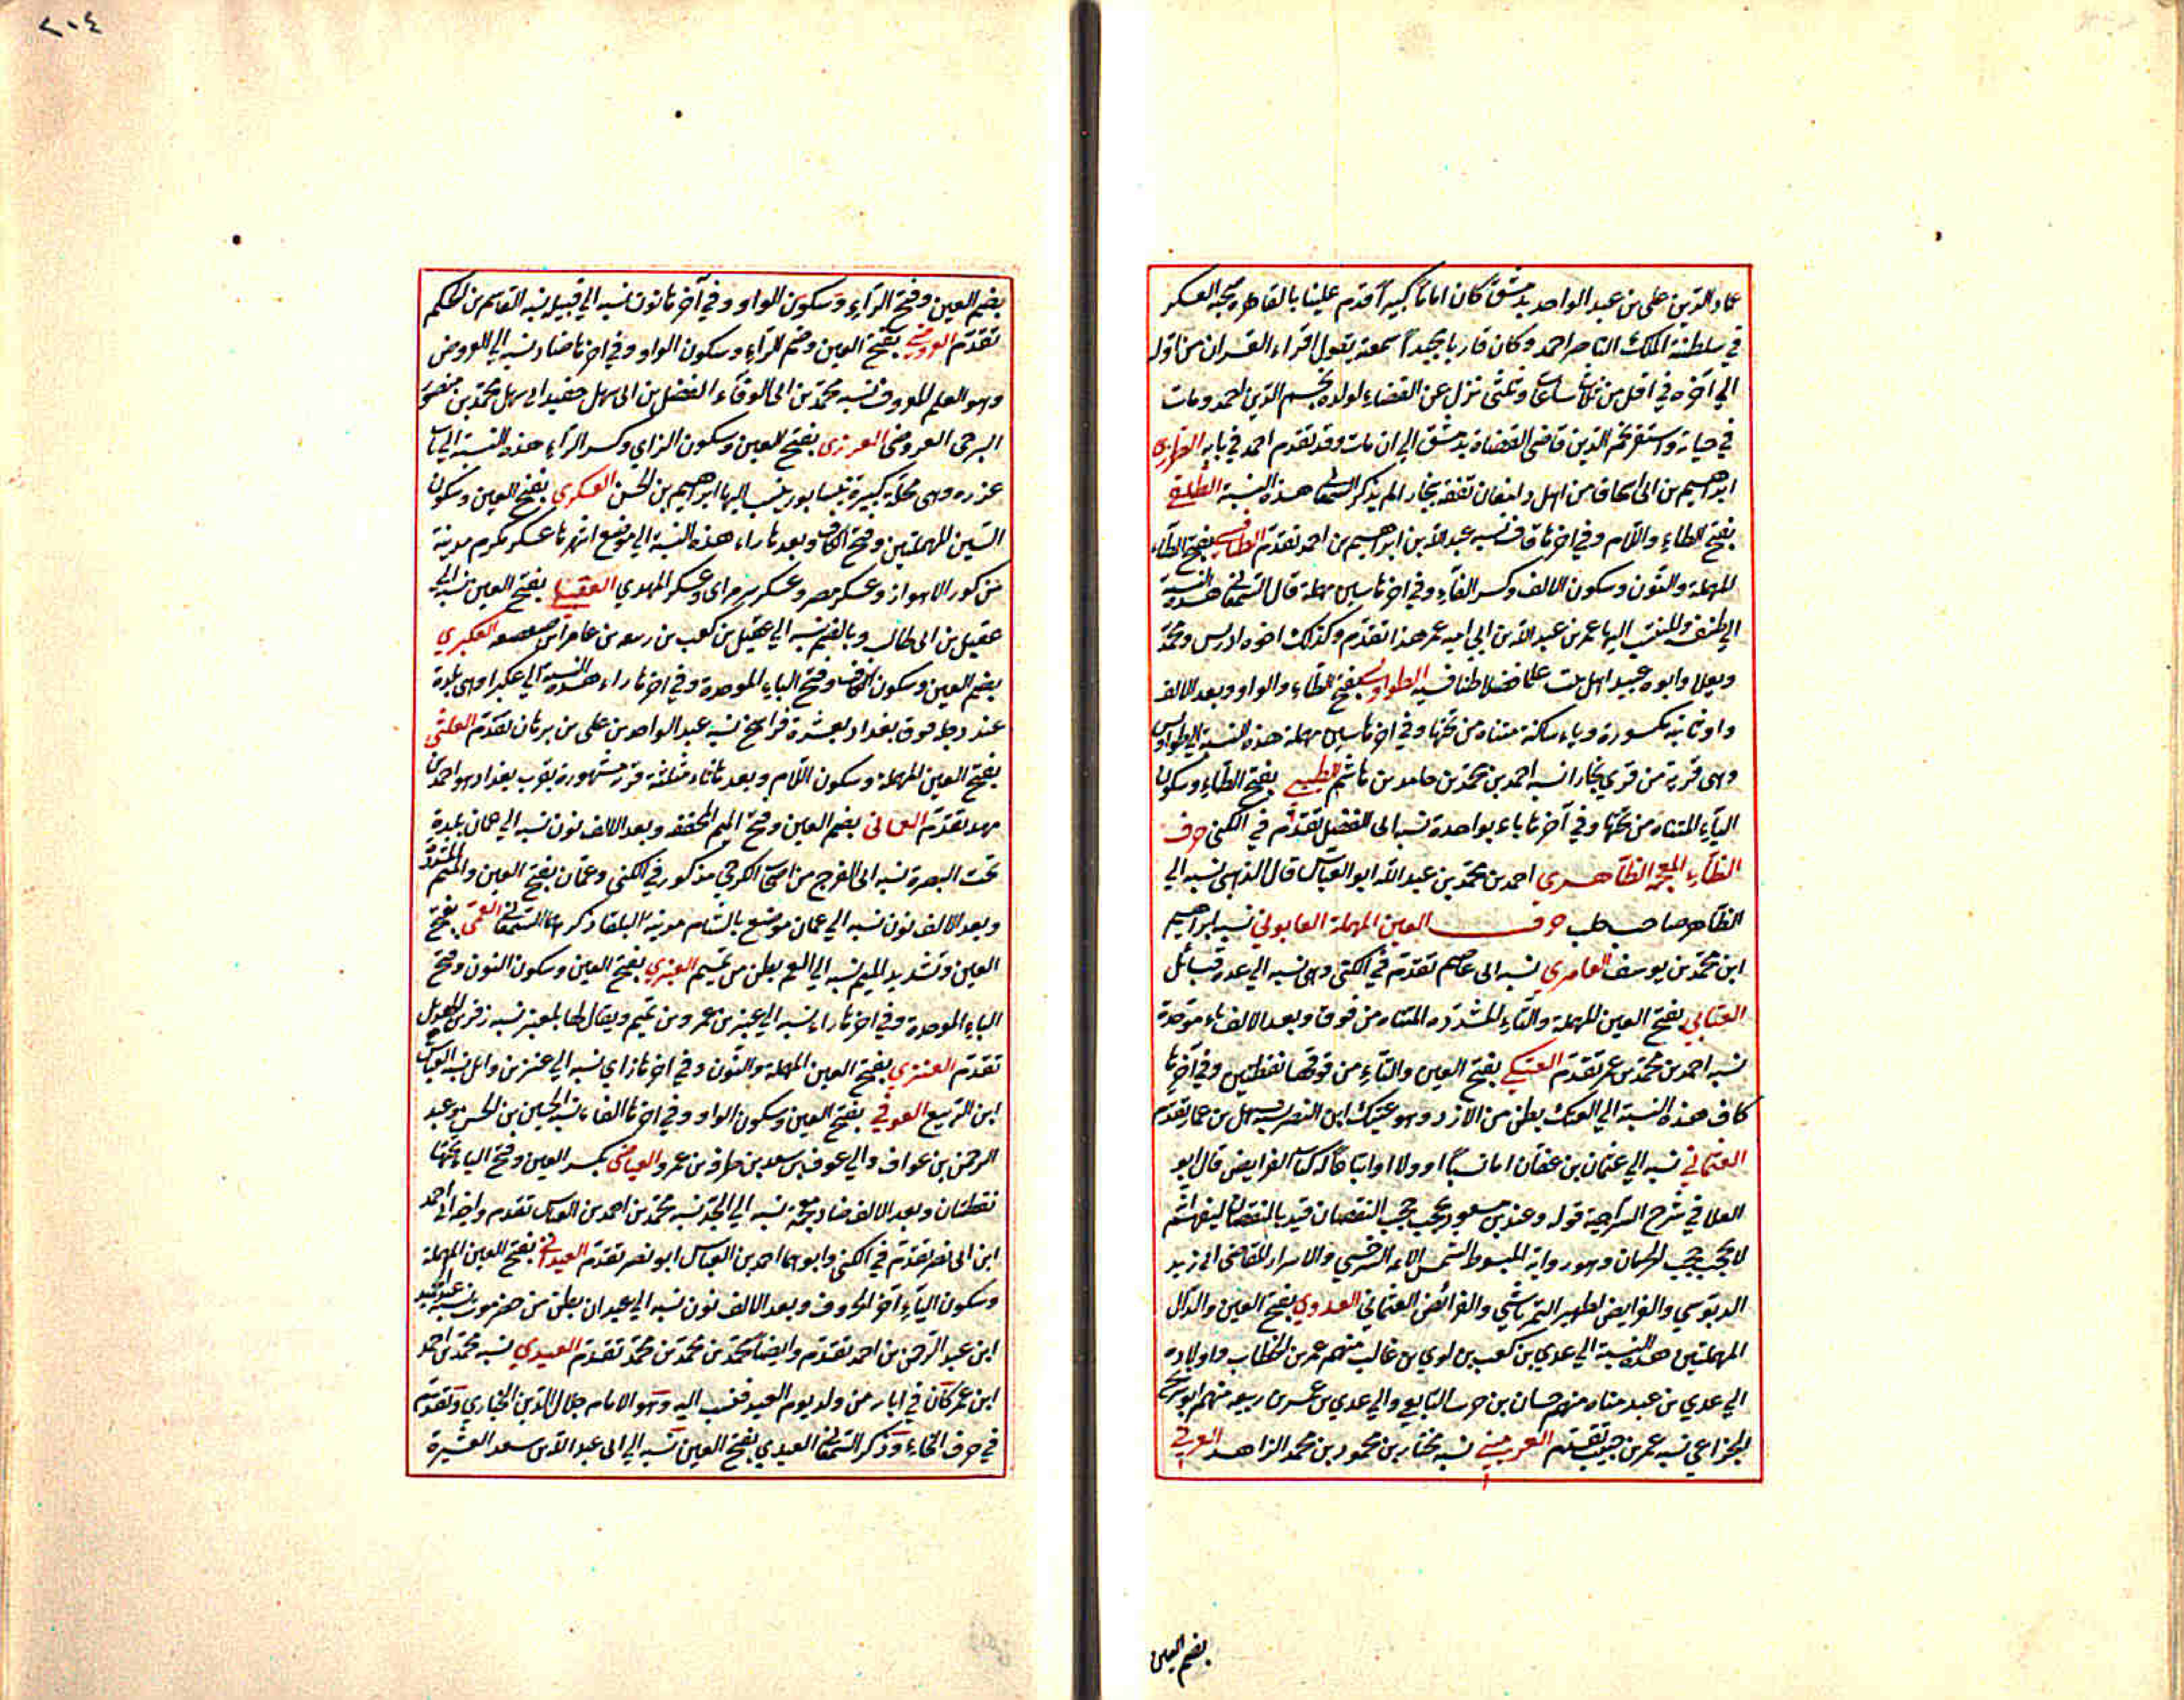 عماد الدين على بن عبد الواحد بدمشق كان اماما كبيرا قدم علينا بالقاهرة صحبه العسكر
في سلطنة الملك الناصر احمد وكان قاريا مجيدا سمعته يقول اقراء القران من اوله
الي آخره في اقل من ثلاث ساعات وثلثى نزل عن القضاء لولده نجم الدين احمد ومات
في حياته واستقر نجم الدين قاضى القضاة بدمشق الي ان مات وقد تقدم احمد في بابه
ابراهيم بن ابى اسحاق من اهل دامغان تفقه ببخارا لم يذكر السمعانى هذه النسبة الطلقي
بفتح الطاء واللام وفي اخرها قاف نسبه عبد الله بن ابراهيم بن احمد تقدم الطنافسي بفتح الطاء
المهملة والنون وسكون الالف وكسر الفاء وفي اخرها سين مهملة قال السمعانى هذه النسبة
الي طنفسة المنتسب اليها عمر بن عبد الله بن ابي اميه عمر هذا تقدم وكذلك اخوه ادريس ومحمد
ويعلا وابوه عبيد اهل بيت علما فضلا طنافسيه الطواويسي بفتح الطاء والواو وبعد الالف
واو ثانية مكسورة وياء ساكنة مثناه من تحتها وفي اخرها سين مهملة هذه النسبة الي طواويس
وهى قرية من قرى بخارا نسبه احمد بن محمد بن حامد بن هاشم الطيبي بفتح الطاء وسكون
الياء المثناه من تحتها وفي آخرها باء بواحدة نسبه ابى الفضل تقدم في الكنى حرف
الظاء المعجمة الظاهري احمد بن محمد بن عبد الله ابو العباس قال الذهبى نسبه الي
الظاهر صاحب حلب حرف العين المهملة العابوني نسبه ابراهيم
ابن محمد بن يوسف العامري نسبه ابى عاصم تقدم في الكنى وهى نسبه الي عدة قبائل
العتابي بفتح العين المهملة والتاء المشددة المثناه من فوق وبعد الالف باء موحدة
نسبه احمد بن محمد بن عمر تقدم العتكي بفتح العين والتاء من فوقها نقطتين وفي آخرها
كاف هذه النسبة الي العتك بطن من الازد وهو عتيك ابن النضر نسبه سهل بن عمار تقدم
العثماني نسبه الي عثمان بن عفان اما نسبا او ولا او اتباعا له كتاب الفرايض قال ابو
العلا في شرح السراجية قوله وعند ابن مسعود يحجب حجب النقصان قيد بالنقصان ليفهم انهم
لا يحجب حجب الحرمان وهو رواية المبسوط لشمس الائمه السرخسي والاسرار للقاضى ابى زيد
الدبوسي والفرايض لظهير التمرتاشي والفرائض العثماني العدوي بفتح العين والدال
المهملتين هذه النسبة الي عدي بن كعب بن لوي بن غالب منهم عمر بن الخطاب واولاده
الي عدي بن عبد مناه منهم حسان بن حرب التابعي والي عدي بن عمرو بن ربيعه منهم ابو شريح
الخزاعي نسبه عمر بن حبيب تقدم نسبه مختار بن محمود بن محمد الزاهد العرني
بضم العين
٢٠٤
بضم العين وفتح الراء وسكون الواو وفي آخرها نون نسبه الي قبيله نسبه القاسم بن الحكم
تقدم العروضي بفتح العين وضم الراء وسكون الواو وفي اخرها ضاد نسبه الي العروض
وهو العلم المعروف نسبه محمد بن ابى الوفاء الفضل بن ابى سهل حفيد ابي سهل محمد بن منصور
البرجى العروضى العزري بفتح العين وسكون الزاي وكسر الراء هذه النسبة الي باب
عزره وهى محلة كبيرة بنيسابور ينسب اليها ابراهيم بن الحسن العسكري بفتح العين وسكون
السين المهملتين وفتح الكاف وبعدها راء هذه النسبة الي مواضع اشهرها عسكر مكرم مدينة
من كور الاهواز وعسكر مصر وعسكر سر من راى وعسكر المهدي العقيلي بفتح العين نسبه الي
عقيل بن ابى طالب وبالضم نسبه الي عقيل بن كعب بن ربيعه بن عامر بن صعصعه العكبري
بضم العين وسكون الكاف وفتح الباء الموحدة وفي اخرها راء هذه النسبة الي عكبرا وهى بلدة
عند دجلة فوق بغداد بعشرة فراسخ نسبه عبد الواحد بن على بن برهان تقدم العلثى
بفتح العين المهملة وسكون اللام وبعدها ثاء مثلثة قرية مشهورة بقرب بغداد هو احمد بن
مهد تقدم العمانى بضم العين وفتح الميم المخففه وبعد الالف نون نسبه الي عمان بلدة
تحت البصرة نسبه ابى الفرج من اصحاب الكرخي مذكور في الكنى وعمان بفتح العين والميم المشدد
وبعد الالف نون نسبه الي عمان موضع بالشام مدينة البلقا ذكرهما السمعانى العمى بفتح
العين وتشديد الميم نسبه الي العم بطن من تميم العنبري بفتح العين وسكون النون وفتح
الباء الموحدة وفي اخرها راء نسبه الي عنبر بن عمرو بن تميم ويقال لها بلعنبر نسبه زفر بن الهذيل
تقدم العنزي بفتح العين المهملة والنون وفي اخرها زاي نسبه الي عنز بن وائل نسبه العباس
ابن الربيع العوفي بفتح العين وسكون الواو وفي اخرها الفاء نسبه الحسين بن الحسن وعبد
الرحمن بن عواف والي عوف بن سعد بن ظرف بن عمرو العياضى بكسر العين وفتح الياء تحتها
نقطتان وبعد الالف ضاد معجمة نسبه الي الجد نسبه محمد بن احمد بن العباس تقدم واخوه ابى احمد
ابن ابى نصر تقدم في الكنى وابوهما احمد بن العباس ابو نصر تقدم العيداني بفتح العين المهملة
وسكون الياء آخر الحروف وبعد الالف نون نسبه الي عيدان بطن من حضرموت نسبه عبد الحميد
ابن عبد الرحمن بن احمد تقدم وايضا محمد بن محمد بن محمد تقدم العيدي نسبه محمد بن احمد
ابن عمر كان في ابار من ولد يوم العيد فنسب اليه وهو الامام جلال الدين الخباري وتقدم
في حرف الخاء وذكر السمعانى العيدي بفتح العين نسبه الي ابى عبد الله بن سعد العشيرة